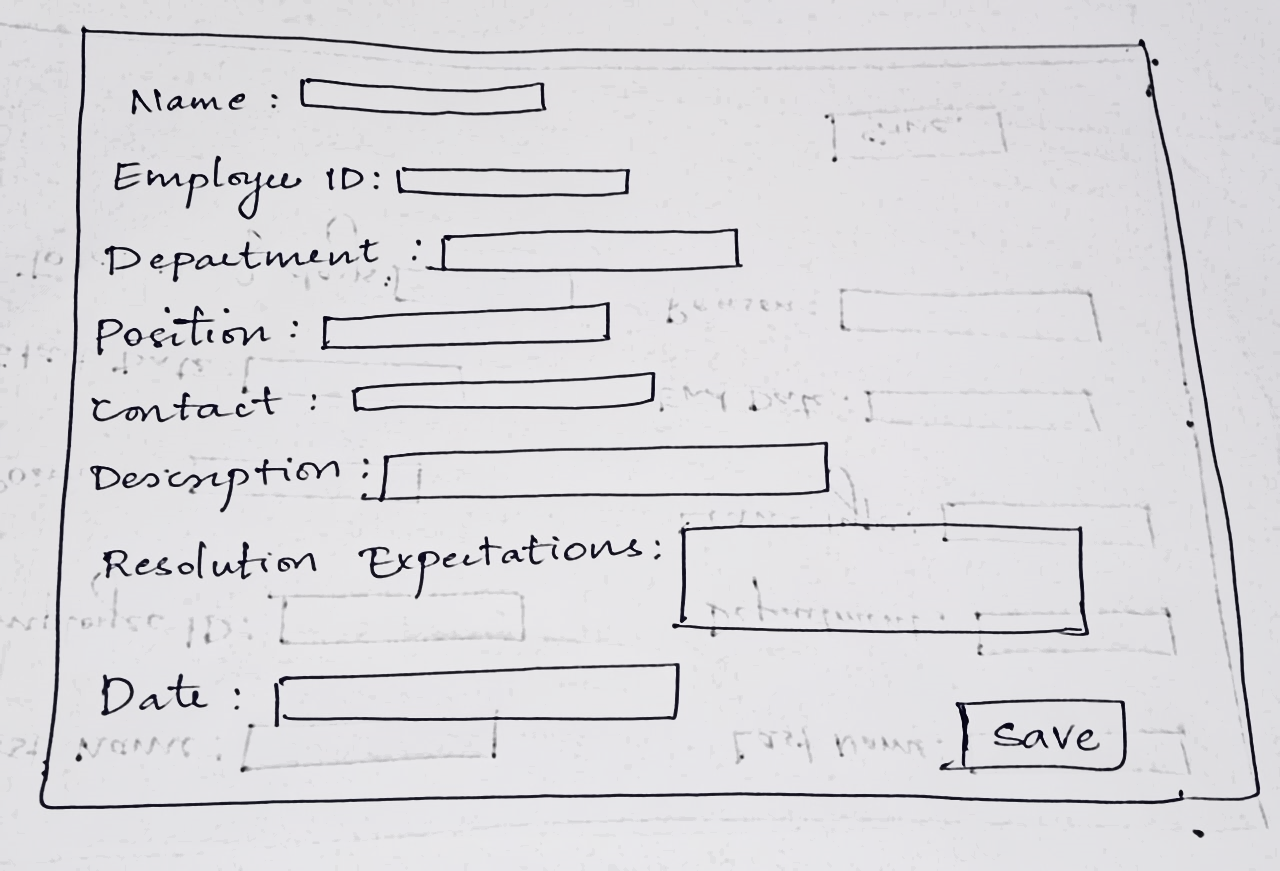 Name :
Employee ID:
Department :
Position :
Contact :
Description :
Resolution Expectations:
Date :
Save